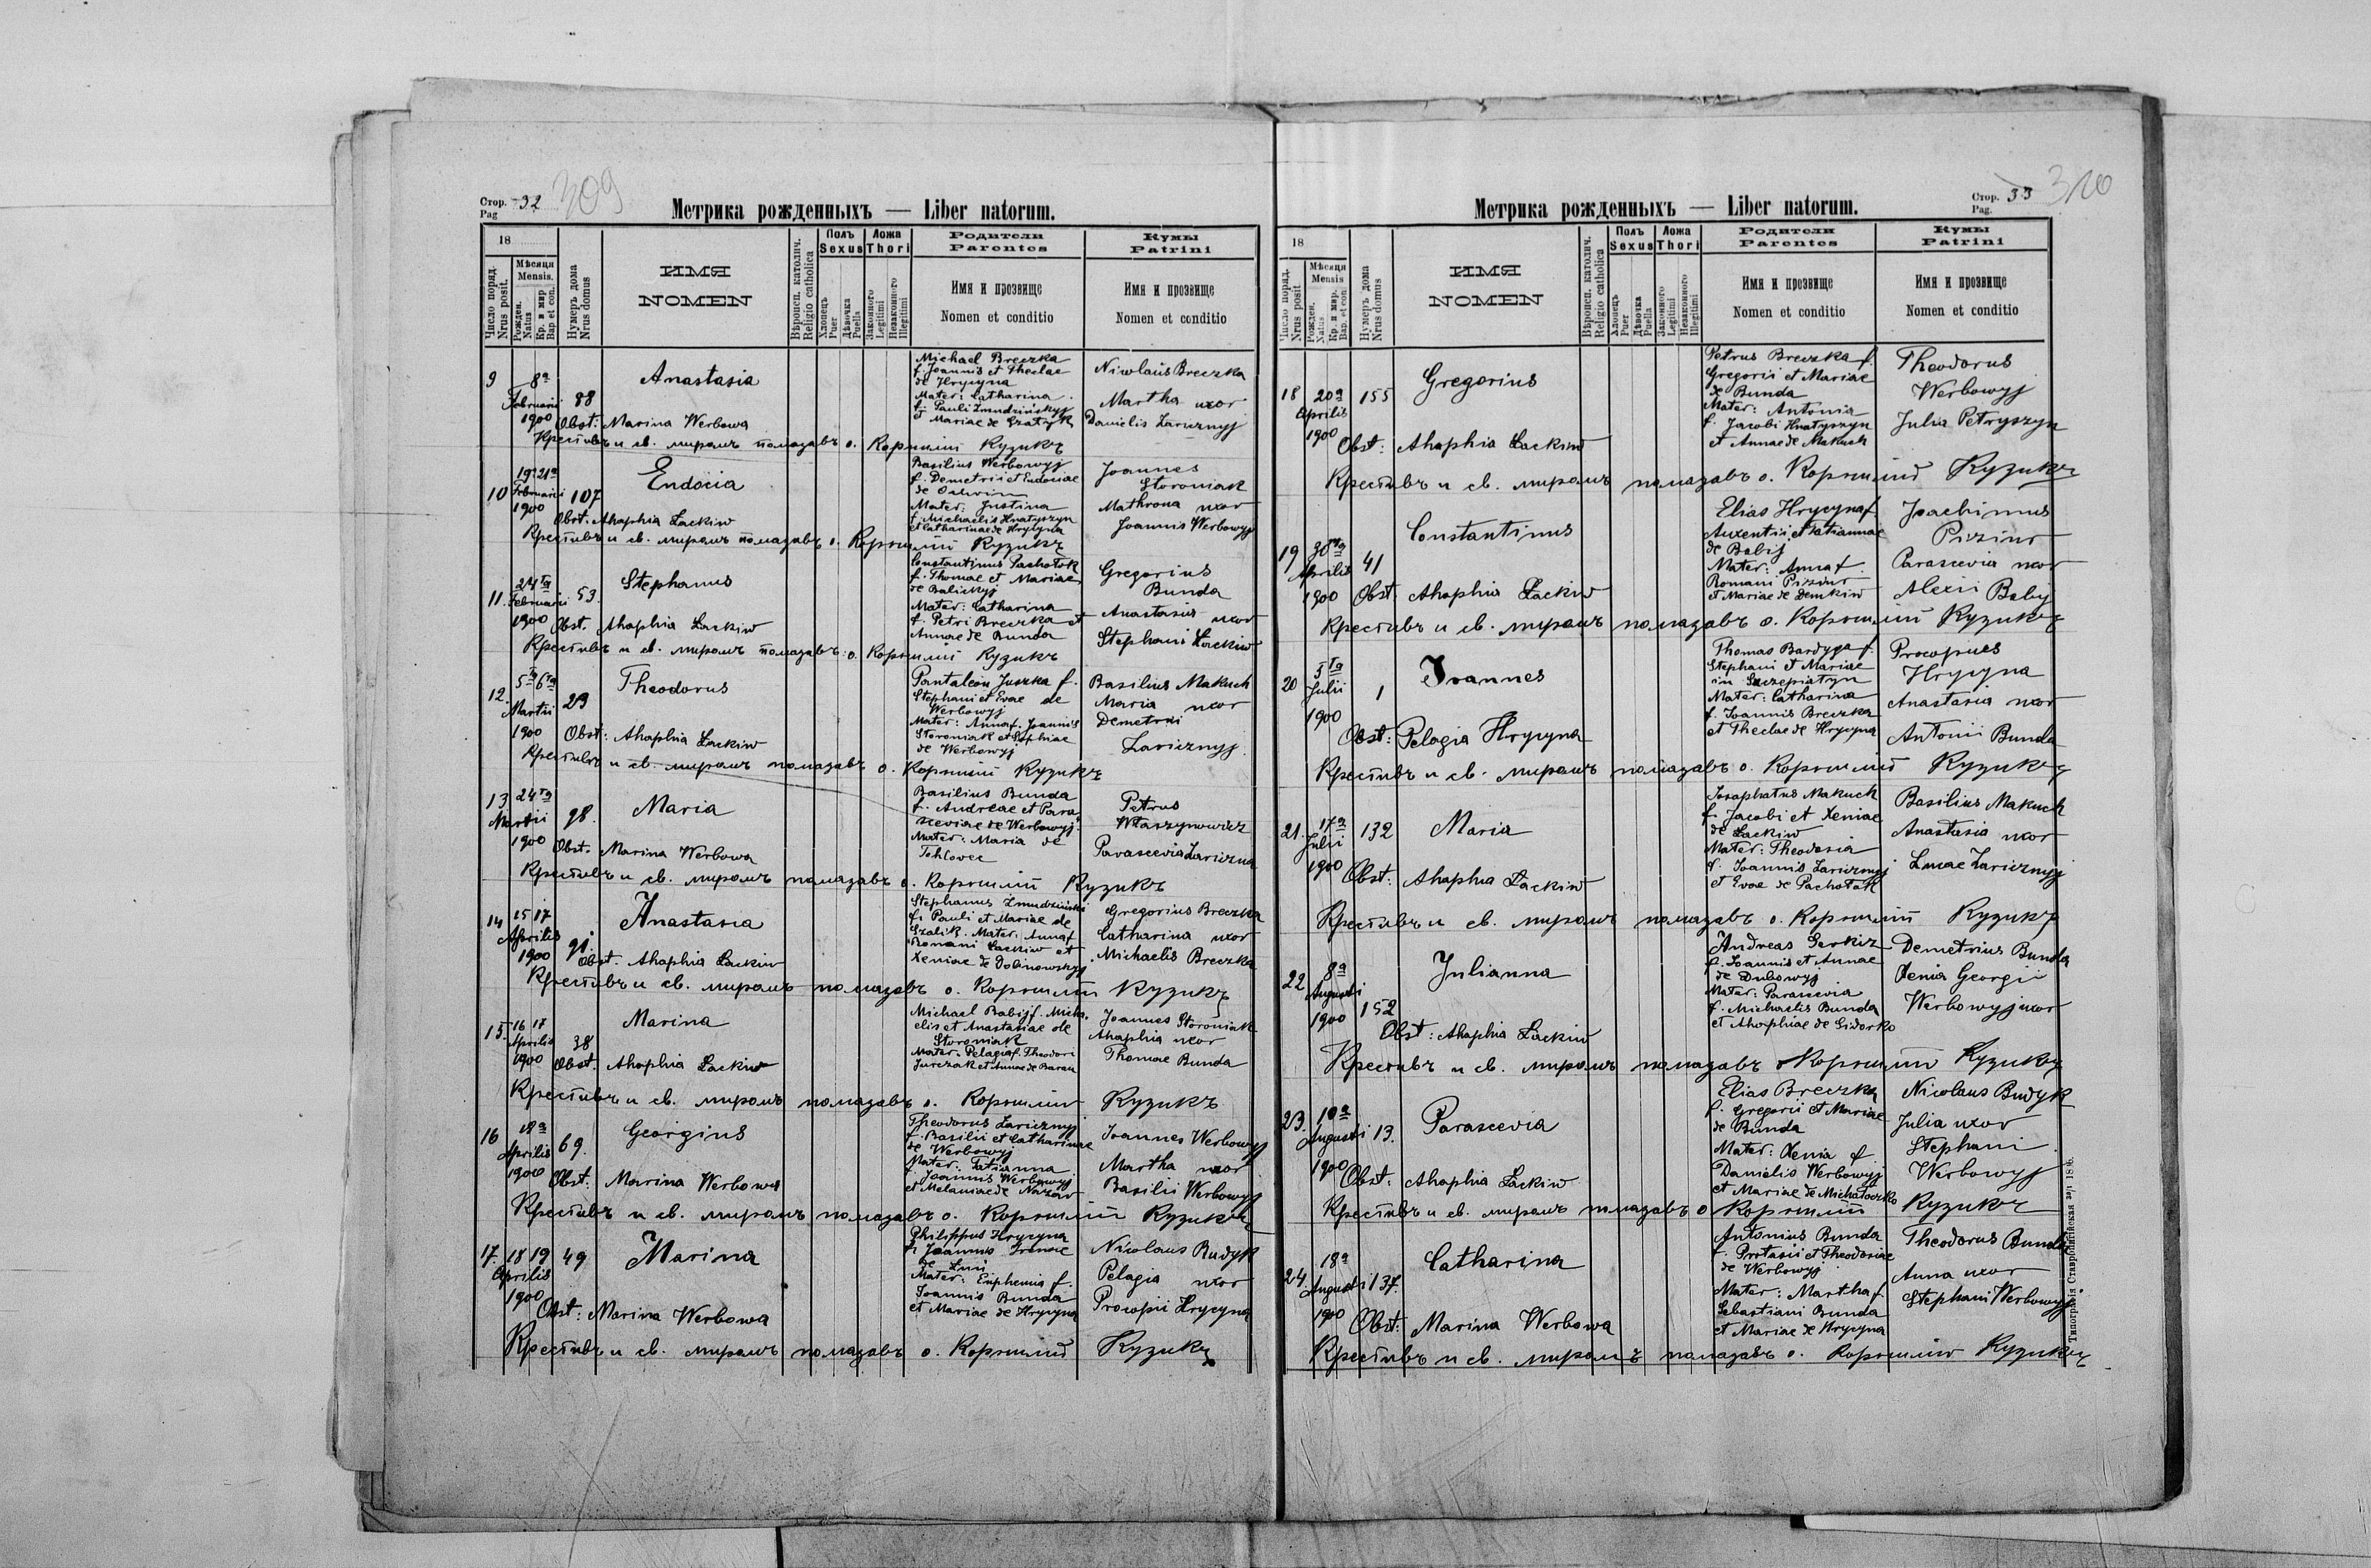 Стор. 32
Pag
309
Метрика рожденныхъ — Liber natorum.
18
Число поряд.
Nrus posit.
Мѣсяця
Mensis.
Рожден.
Natus
Кр. и мир
Bap. et con.
Нумеръ дома
Nrus domus
ИМЯ
NOMEN
Вѣроисп. католич.
Religio catholica
Полъ
Sexus
Хлопецъ
Puer
Дѣвочка
Puella
Ложа
Thori
Законного
Legitimi
Незаконного
Illegitimi
Родители
Parentes
Имя и прозвище
Nomen et conditio
Кумы
Patrini
Имя и прозвище
Nomen et conditio
9
8a
Februarii
1900
88
Anastasia
Obst: Marina Werbowa
Michael Breczka
f. Joannis et Theclae
de Hrycyna
Mater: Catharina
f. Pauli Zmudzińskyj
et Mariae de
Nicolaus Breczka
Martha uxor
Danielis Zaricznyj
Крестивъ и св. миромъ помазавъ о. Корнилій Кузикъ
10
19 21a
Februarii
1900
107
Eudocia
Obst. Ahaphia Lackiw
Basilius Werbowyj
f. Demetrii et Eudociae
de
Mater: Justina
f. Michaelis Hnatyszyn
et Catharinae de Hrycyna
Joannes
Storoniak
Mathrona uxor
Joannis Werbowyj
Крестивъ и св. миромъ помазавъ о. Корнилій Кузикъ
11.
24ta
Februarii
1900
53.
Stephanus
Obst. Ahaphia Lackiw
Constantinus Pachołok
f. Thomae et Mariae
de Balickyj
Mater: Catharina
f. Petri Breczka et
Annae de Bunda
Gregorius
Bunda
Anastasia uxor
Stephani Lackiw
Крестивъ и св. миромъ помазавъ о. Корнилій Кузикъ
12.
5ta 6ta
Martii
1900
29
Theodorus
Obst: Ahaphia Lackiw
Pantaleon Juszka f.
Stephani et Evae de
Werbowyj
Mater: Anna f. Joannis
Storoniak et Sophiae
de Werbowyj
Basilius Makuch
Maria uxor
Demetrii
Zaricznyj
Крестивъ и св. миромъ помазавъ о. Корнилій Кузикъ
13
24ta
Martii
1900
98.
Maria
Obst. Marina Werbowa
Basilius Bunda
f. Andreae et Para
sceviae de Werbowyj.
Mater: Maria de
Petrus
Właszynowicz
Parascevia Zariczna
Крестивъ и св. миромъ помазавъ о. Корнилій Кузикъ
14
15 17
Aprilis
1900
91.
Anastasia
Obst. Ahaphia Lackiw
Stephanus Zmudziński
f. Pauli et Mariae de
Mater: Anna f.
Romani Lackiw et
Xeniae de Dolinowskyj
Gregorius Breczka
Catharina uxor
Michaelis Breczka
Крестивъ и св. миромъ помазавъ о. Корнилій Кузикъ
15.
16 17
Aprilis
1900
38
Marina
Obst. Ahaphia Lackiw
Michael Babij f. Micha
elis et Anastasiae de
Storoniak
Mater: Pelagia f. Theodori
Jurczak et Annae de Baran
Joannes Storoniak
Ahaphia uxor
Thomae Bunda
Крестивъ и св. миромъ помазавъ о. Корнилій Кузикъ
16
18a
Aprilis
1900
69.
Georgius
Obst: Marina Werbowa
Theodorus Zaricznyj
f. Basilii et Catharinae
de Werbowyj
Mater: Tatianna
f. Joannis Werbowyj
et Melaniae de Nazar
Joannes Werbowyj
Martha uxor
Basilii Werbowyj
Крестивъ и св. миромъ помазавъ о. Корнилій Кузикъ
17.
18 19
Aprilis
1900
49
Marina
Obst: Marina Werbowa
Philippus Hrycyna
f. Joannis Irenae
de
Mater: Euphemia f.
Joannis Bunda
et Mariae de Hrycyna
Nicolaus Rudyk
Pelagia uxor
Procopii Hrycyna
Крестивъ и св. миромъ помазавъ о. Корнилій Кузикъ
Метрика рожденныхъ — Liber natorum.
Стор. 33
Pag.
310
18
Число поряд.
Nrus posit
Мѣсяця
Mensis
Рожден.
Natus
Кр. и мир.
Bap. et con
Нумеръ дома
Nrus domus
ИМЯ
NOMEN
Вѣроисп. католич.
Religio catholica
Полъ
Sexus
Хлопецъ
Puer
Дѣвочка
Puella
Ложа
Thori
Законного
Legitimi
Незаконного
Illegitimi
Родители
Parentes
Имя и прозвище
Nomen et conditio
Кумы
Patrini
Имя и прозвище
Nomen et conditio
18
20a
Aprilis
1900
155
Gregorius
Obst: Ahaphia Lackiw
Petrus Breczka f.
Gregorii et Mariae
de Bunda
Mater: Antonia
f. Jacobi Hnatyszyn
et Annae de Makuch
Theodorus
Werbowyj
Julia Petryszyn
Крестивъ и св. миромъ помазавъ о. Корнилій Кузикъ
19
30ta
Aprilis
1900
41
Constantinus
Obst. Ahaphia Lackiw
Elias Hrycyna f.
Auxentii et Tatiannae
de Babij
Mater: Anna f.
Romani Pizzinr
et Mariae de Demkiw
Joachimus
Parascevia uxor
Alexii Babij
Крестивъ и св. миромъ помазавъ о. Корнилій Кузикъ
20
5ta
Julii
1900
1
Joannes
Obst: Pelagia Hrycyna
Thomas Bardyga f.
Stephani et Mariae
in Szczepiatyn
Mater: Catharina
f. Joannis Breczka
et Theclae de Hrycyna
Procopius
Hrycyna
Anastasia uxor
Antonii Bunda
Крестивъ и св. миромъ помазавъ о. Корнилій Кузикъ
21.
17a
Julii
1900
132
Maria
Obst: Ahaphia Lackiw
Josaphatus Makuch
f. Jacobi et Xeniae
de Lackiw
Mater: Theodosia
f. Joannis Zaricznyj
et Evae de Pachołok
Basilius Makuch
Anastasia uxor
Lucae Zaricznyj
Крестивъ и св. миромъ помазавъ о. Корнилій Кузикъ
22
8a
Augusti
1900
152
Julianna
Obst: Ahaphia Lackiw
Andreas Serkiz
f. Joannis et Annae
de Dubowyj
Mater: Parascevia
f. Michaelis Bunda
et Ahaphiae de Sidorko
Demetrius Bunda
Xenia Georgii
Werbowyj uxor
Крестивъ и св. миромъ помазавъ о Корнилій Кузикъ
23.
10a
Augusti
1900
13.
Parascevia
Obst: Ahaphia Lackiw
Elias Breczka
f. Gregorii et Mariae
de Bunda
Mater: Xenia f.
Danielis Werbowyj
et Mariae de Michałoczko
Nicolaus Rudyk
Julia uxor
Stephani
Werbowyj
Крестивъ и св. миромъ помазавъ о Корнилій Кузикъ
24.
18a
Augusti
1900
137.
Catharina
Obst: Marina Werbowa
Antonius Bunda
f. Protasii et Theodosiae
de Werbowyj
Mater: Martha f.
Sebastiani Bunda
et Mariae de Hrycyna
Theodorus Bunda
Anna uxor
Stephani Werbowyj
Крестивъ и св. миромъ помазавъ о. Корнилій Кузикъ
Типографія Ставропигійская